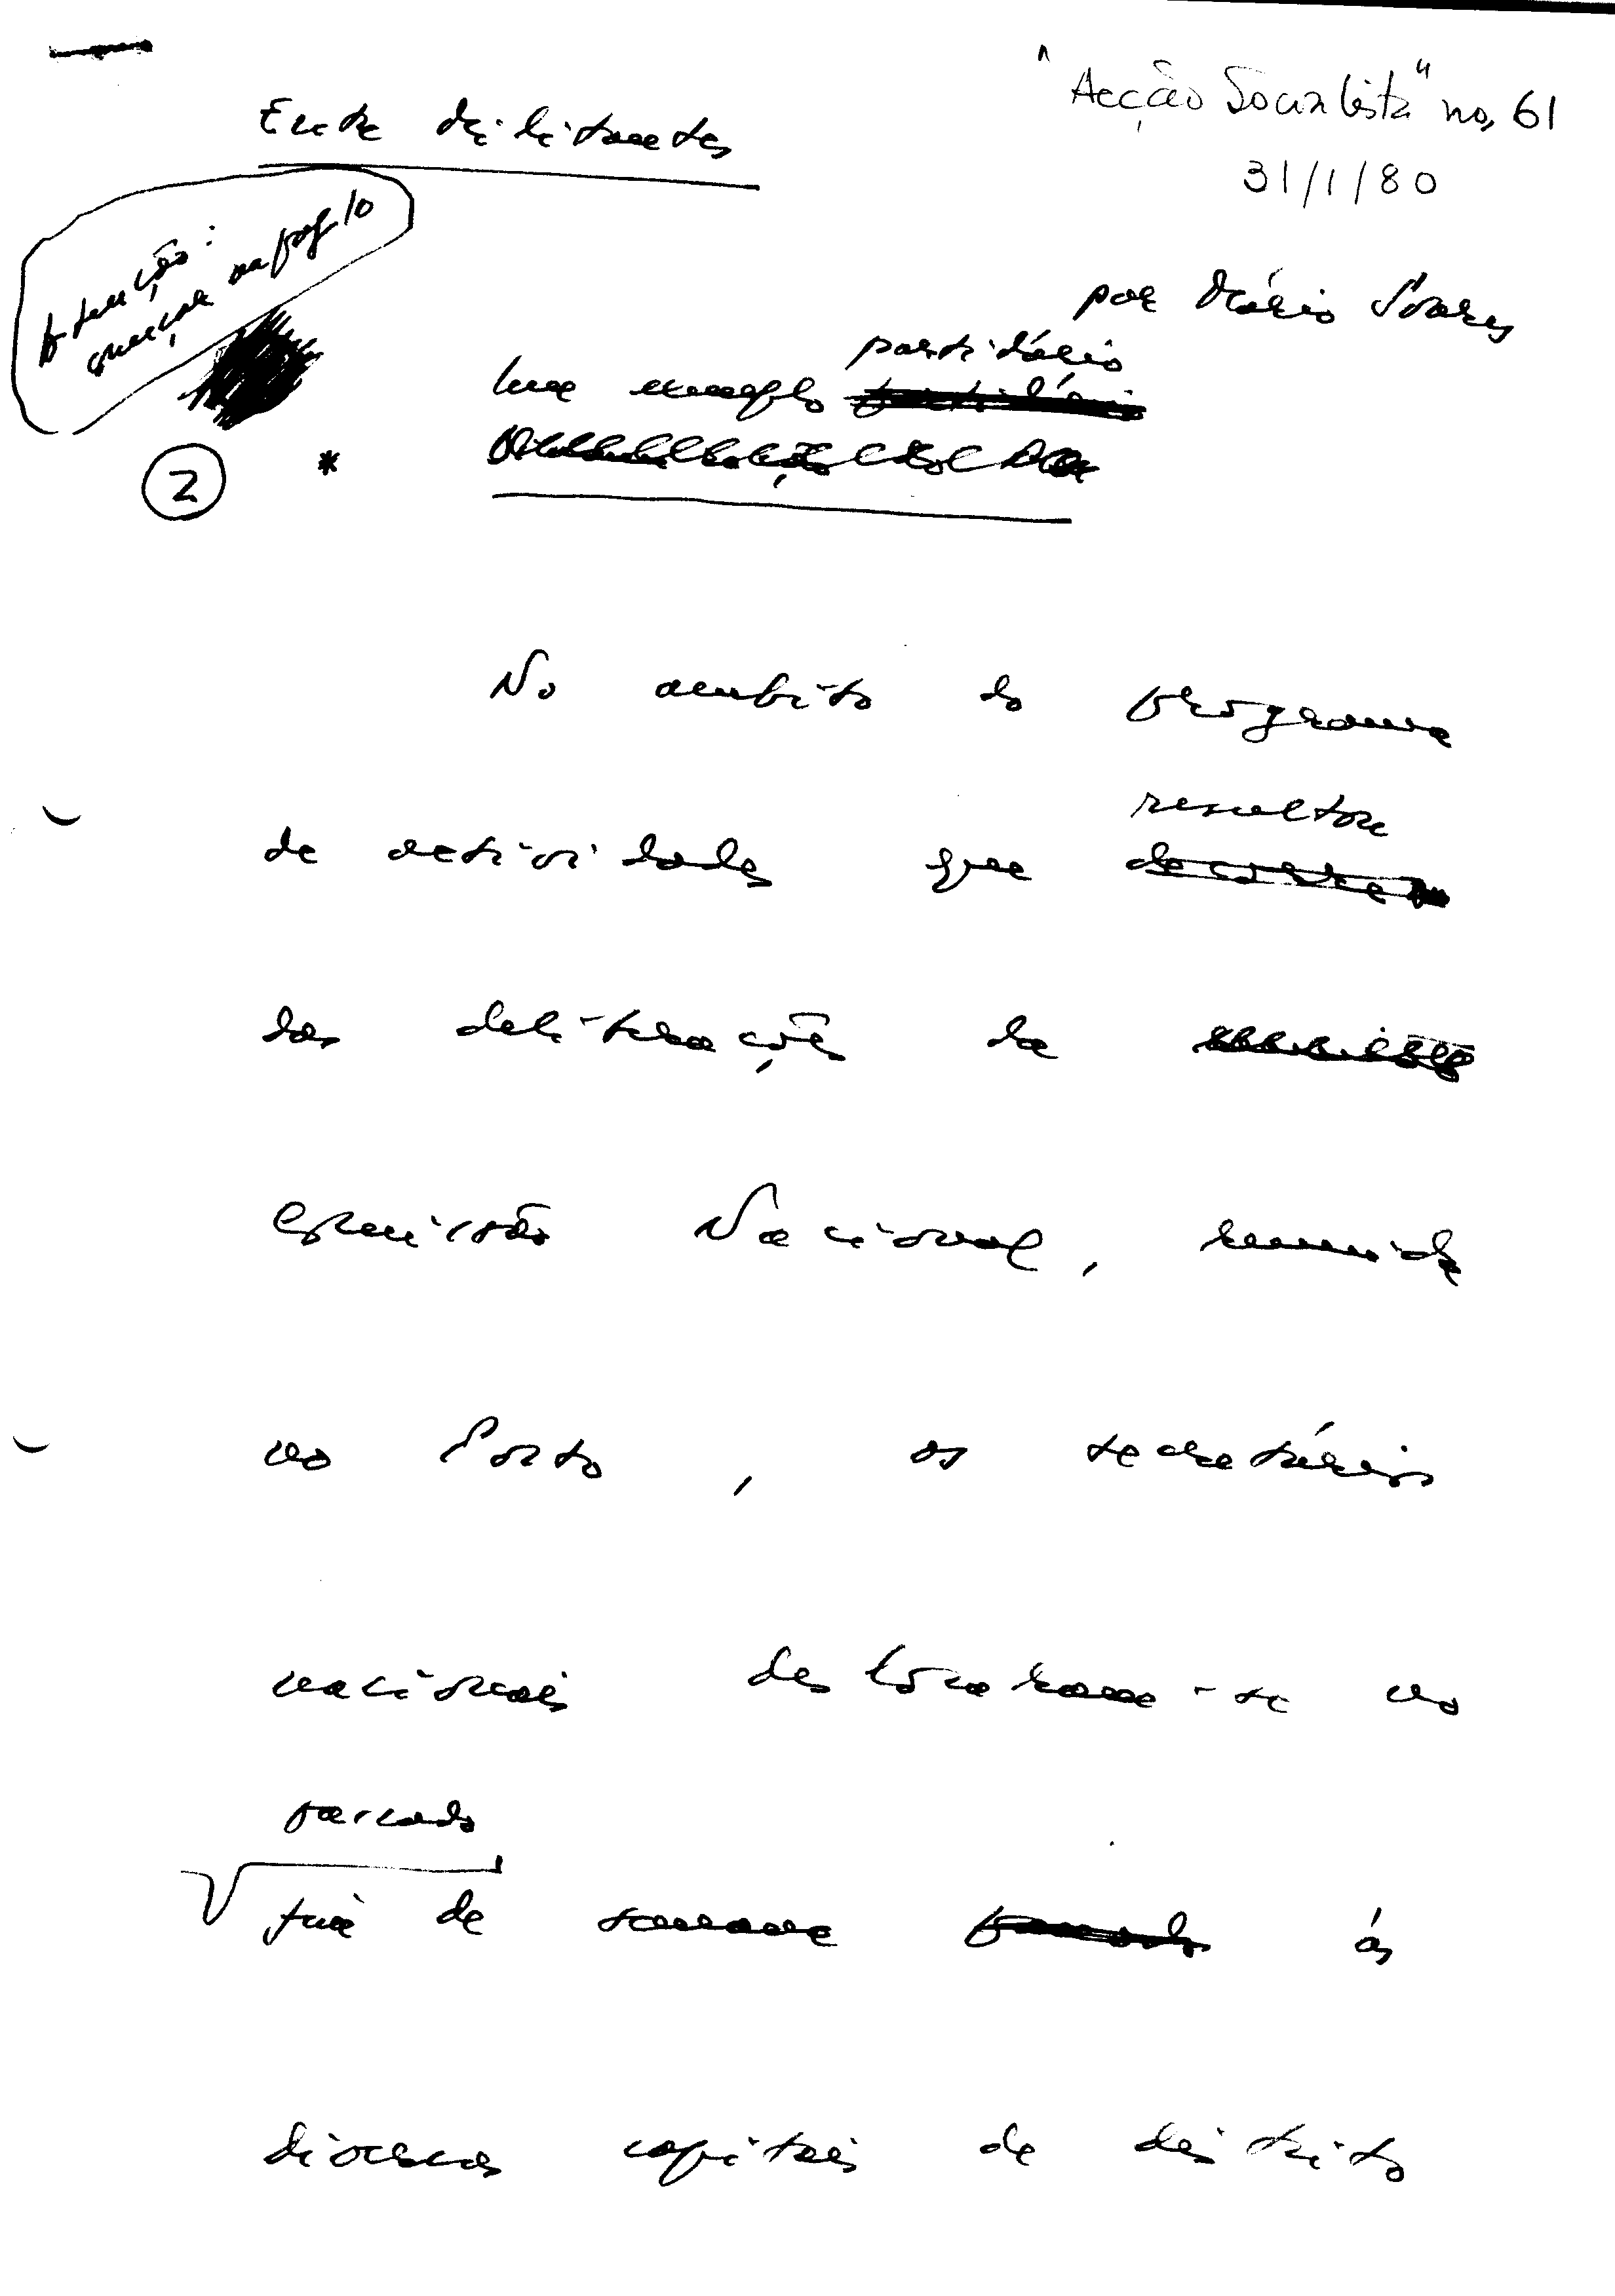 "Acção Socialista" no, 61
31/1/80
Entre Militantes
Atenção:
começar na pag 10
por Mário Soares
partidário
Um exemplo
2 *
No ambito do programa
resultou
de actividades que decorreu
das deliberações da
Comissão Nacional, reunida
no Porto, os secretários
nacionais deslocaram-se no
passado
fim de semana passado ás
diversas capitais de distrito